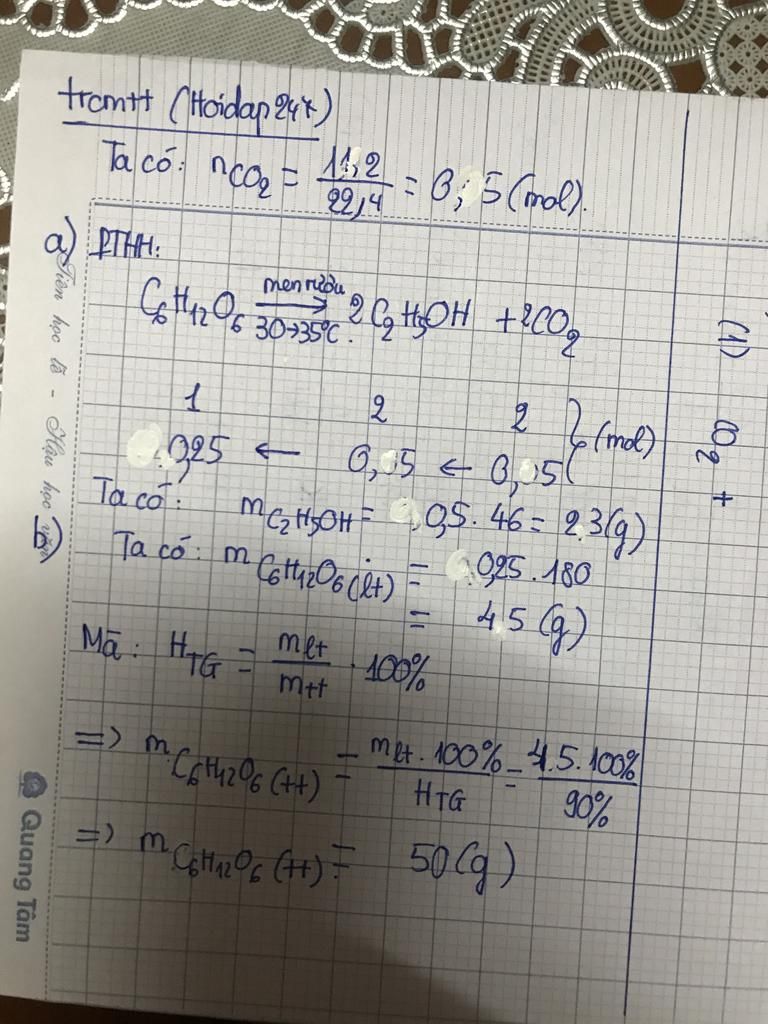 trcmtt (Hoidap247)
Ta có: nCO₂ = 11,2/22,4 = 0,5 (mol).
a) PTHH:
C₆H₁₂O₆ men rượu/30→35°C. → 2C₂H₅OH + 2CO₂
1 2 2 } (mol)
0,25 ← 0,5 ← 0,5
Ta có: mC₂H₅OH = 0,5.46 = 23(g)
Ta có: mC₆H₁₂O₆(lt) = 0,25.180
= 45 (g)
Mà: HTG = mlt/mtt . 100%
=> mC₆H₁₂O₆(tt) = mlt.100%/HTG = 45.100%/90%
=> mC₆H₁₂O₆(tt) = 50(g)
(1)
CO₂ +
Tiên học lễ - Hậu học văn
Quang Tâm